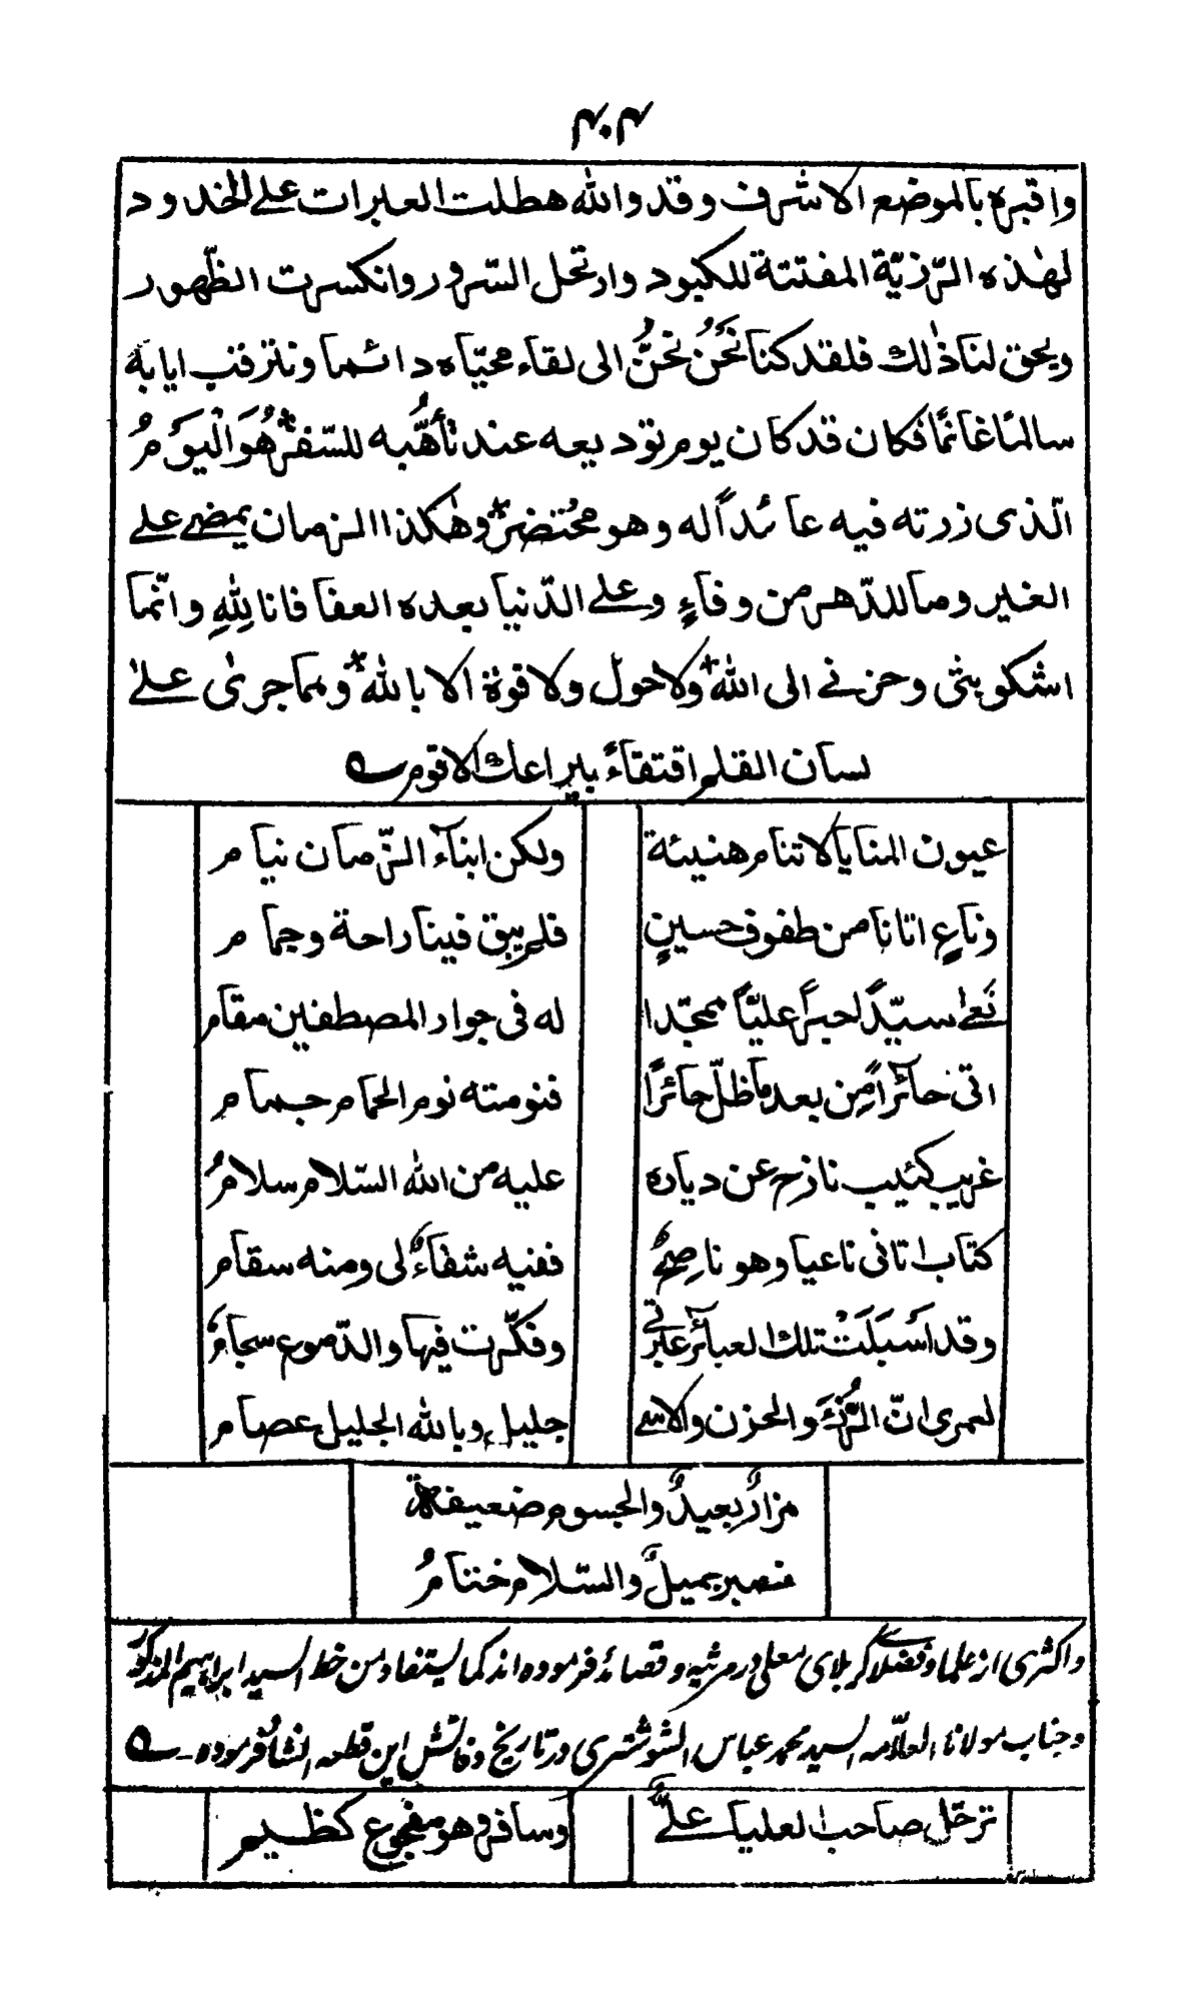 ٣٠٣
واقبره بالموضع الاشرف وقد والله هطلت العبرات على الخدود
لهذه الرّزيّة المفتتة للكبود وارتحل السّرور وانكسرت الظّهور
ويحق لنا ذٰلك فلقد كنا نَحْنُ نحنُّ الى لقاء محيّاه دائما ونترقب ايابه
سالمًا غانمًا فكان قد كان يوم توديعه عند تأهُّبه للسّفر هُوَ الْيَوْمُ
الّذى زرته فيه عائداً له وهو محُتضر وهٰكذا الزمان يمضے علے
الغير وما للدّهر من وفاءٍ وعلے الدّنيا بعده العفا فانا لِلّٰهِ وانّما
اشكو بثى وحزنے الى الله ولا حول ولا قوة الا بالله ومما جرىٰ علىٰ
لسان القلم اقتفاءً بيراعك الاقوم
عيون المنايا لا تنام هنيئة
ولكن ابناءَ الزّمان نيام
وناعٍ اتانا من طفوف حسينٍ
فلم يبق فينا راحة وجمام
نَعٰے سيّداً حبراً عليّاً ممجّدا
له فى جوار المصطفين مقام
اتى حائراً مِن بعد ما ظلّ حائراً
فنومته نوم الحمام جمام
غريب كئيب نازح عن دياره
عليه من الله السّلام سلامُ
كتاب اتانى ناعيا وهو ناصحٌ
ففيه شفاءٌ لى ومنه سقام
وقد اَسْبَلَتْ تلك العبائر عبرتى
وفكّرت فيها والدّموع سجامُ
لعمرى انّ الرُّزْءَ والحزن والاسے
جليل وبالله الجليل عصام
مزارٌ بعيدٌ والجسوم ضعيفة
فصبر جميلٌ والسّلام ختامُ
واكثرى از علما وفضلاے كربلاى معلى در مرثيه وقصائد فرموده اند كما يستفاد من خط السيد ابراہيم المذكور
وجناب مولانا العلّامه السيد محمد عباس الشوشترى در تاريخ وفاتش اين قطعه انشا فرموده
ترحّل صاحب العليا علىٌّ
وسافر وهو مفجوع كظيم